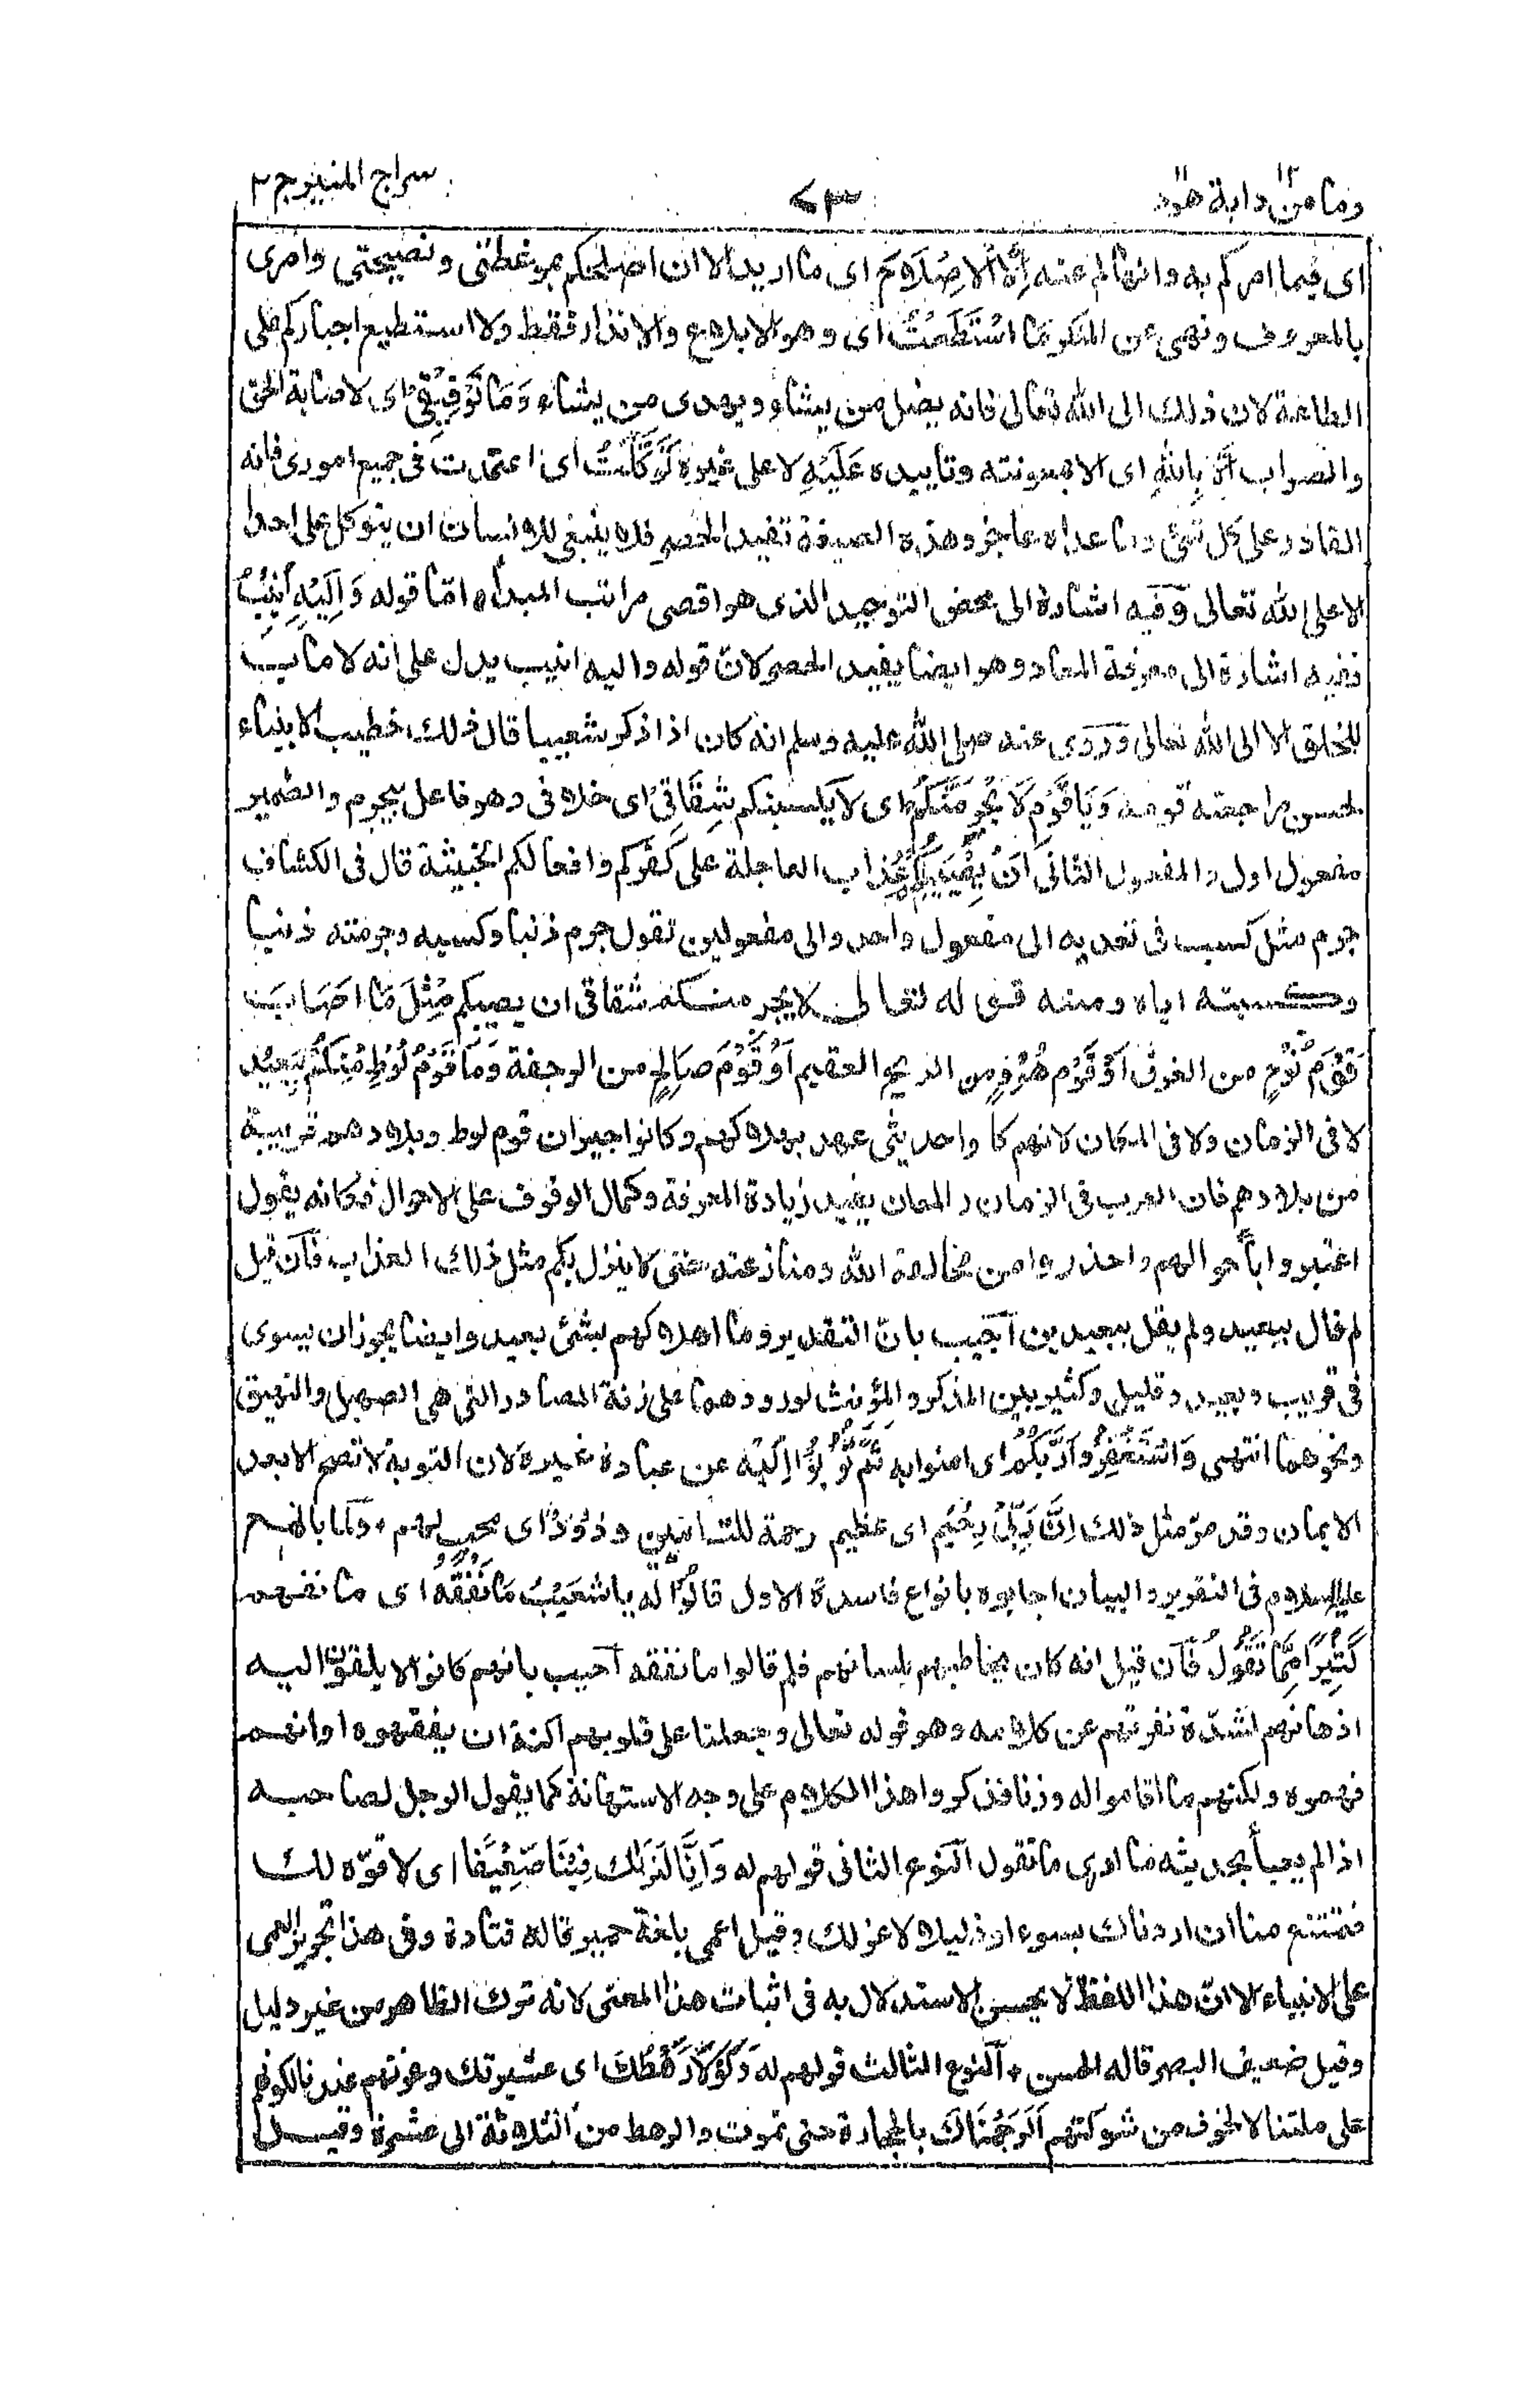 وما من دابة ١٢ هود ١١
٧٣
سراج المنير ج ٢
اى فيما امركم به وانهاكم عنه اِلَّا الْاِصْلَاحَ اى ما اريد الا ان اصلحكم بموعظتى ونصيحتى وامرى
بالمعروف ونهى عن المنكر مَا اسْتَطَعْتُ اى وهو الابلاغ والانذار فقط ولا استطيع اجباركم على
الطاعة لان ذلك الى الله تعالى فانه يضل من يشاء ويهدى من يشاء وَمَا تَوْفِيْقِىْ اى لاصابة الحق
والصواب اِلَّا بِاللهِ اى الا بمعونته وتاييده عَلَيْهِ لا على غيره تَوَكَّلْتُ اى اعتمدت فى جميع امورى فانه
القادر على كل شئ وما عداه عاجز وهذه الصيغة تفيد الحصر فلا ينبغى للانسان ان يتوكل على احد ا
لا على الله تعالى وفيه اشارة الى محض التوحيد الذى هو اقصى مراتب المبدأ، امّا قوله وَاِلَيْهِ اُنِيْبُ
ففيه اشارة الى معرفة المعاد وهو ايضا يفيد الحصر لانّ قوله واليه انيب يدل على انه لا مآب
للخلق الا الى الله تعالى وروى عنه صلى الله عليه وسلم انه كان اذا ذكر شعيبا قال ذلك خطيب الانبياء
لحسن مراجعته قومه وَيَا قَوْمِ لَا يَجْرِمَنَّكُمْ اى لا يكسبنكم شِقَاقِىْ اى خلافى وهو فاعل يجرم والضمير
مفعول اول والمفعول الثانى اَنْ يُصِيْبَكُمْ عذاب العاجلة على كفركم وافعالكم الخبيثة قال فى الكشاف
جرم مثل كسب فى تعديه الى مفعول واحد والى مفعولين تقول جرم ذنبا وكسبه وجرمته ذنبا
وكسبته اياه ومنه قوله تعالى لا يجرمنكم شقاقى ان يصيبكم مِثْلَ مَا اَصَابَ
قَوْمَ نُوْحٍ من الغرق اَوْ قَوْمَ هُوْدٍ من الريح العقيم اَوْ قَوْمَ صَالِحٍ من الرجفة وَمَا قَوْمُ لُوْطٍ مِّنْكُمْ بِبَعِيْدٍ
لا فى الزمان ولا فى المكان لانهم كا واحديثى عهد بهلاكهم وكانوا جيران قوم لوط وبلادهم قريبة
من بلادهم فان القرب فى الزمان والمكان يفيد زيادة المعرفة وكمال الوقوف على الاحوال فكانه يقول
اعتبروا باحوالهم واحذروا من مخالفة الله ومنازعته حتى لا ينزل بكم مثل ذلك العذاب فآن قيل
لم قال ببعيد ولم يقل ببعيدين آجيب بانّ التقدير وما اهلاكهم بشئ بعيد وايضا يجوز ان يسوى
فى قريب وبعيد وقليل وكثير بين المذكر والمؤنث لورودهما على زنة المصادر التى هى الصهيل والنهيق
ونحوهما انتهى وَاسْتَغْفِرُوْا رَبَّكُمْ اى امنوا به ثُمَّ تُوْبُوْا اِلَيْهِ عن عبادة غيره لان التوبة لا تصح الا بعد
الايمان وقد مرّ مثل ذلك اِنَّ رَبِّىْ رَحِيْمٌ اى عظيم رحمة للتائبين وَدُوْدٌ اى محب لهم، ولمّا بالغ
عليه السلام فى التقرير والبيان اجابوه بانواع فاسدة الاول قَالُوْا له يا شُعَيْبُ مَا نَفْقَهُ اى ما نفهم
كَثِيْرًا مِّمَّا تَقُوْلُ فآن قيل انه كان يخاطبهم بلسانهم فلم قالوا ما نفقه آجيب بانهم كانوا لا يلقون اليه
اذهانهم لشدّة نفرتهم عن كلامه وهو قوله تعالى وجعلنا على قلوبهم اكنة ان يفقهوه او انهم
فهموه ولكنهم ما اقاموا له وزنا فذكروا هذا الكلام على وجه الاستهانة كما يقول الرجل لصاحبه
اذا لم يعبأ بحديثه ما ادرى ما تقول آلنوع الثانى قولهم له وَاِنَّا لَنَرٰكَ فِيْنَا ضَعِيْفًا اى لا قوّه لك
فتمتنع منا ان اردناك بسوء او ذليلا لا عز لك وقيل اعمى بلغة حمير قاله قتادة وفى هذا تجويز العمى
على الانبياء الا انّ هذا اللفظ لا يحسن الاستدلال به فى اثبات هذا المعنى لانه ترك الظاهر من غير دليل
وقيل ضعيف البصر قاله الحسن، آلنوع الثالث قولهم له وَلَوْلَا رَهْطُكَ اى عشيرتك وعزتهم عندنا لكونهم
على ملتنا لا لخوف من شوكتهم لَرَجَمْنَاكَ بالحجارة حتى تموت والرهط من الثلاثة الى عشرة وقيل